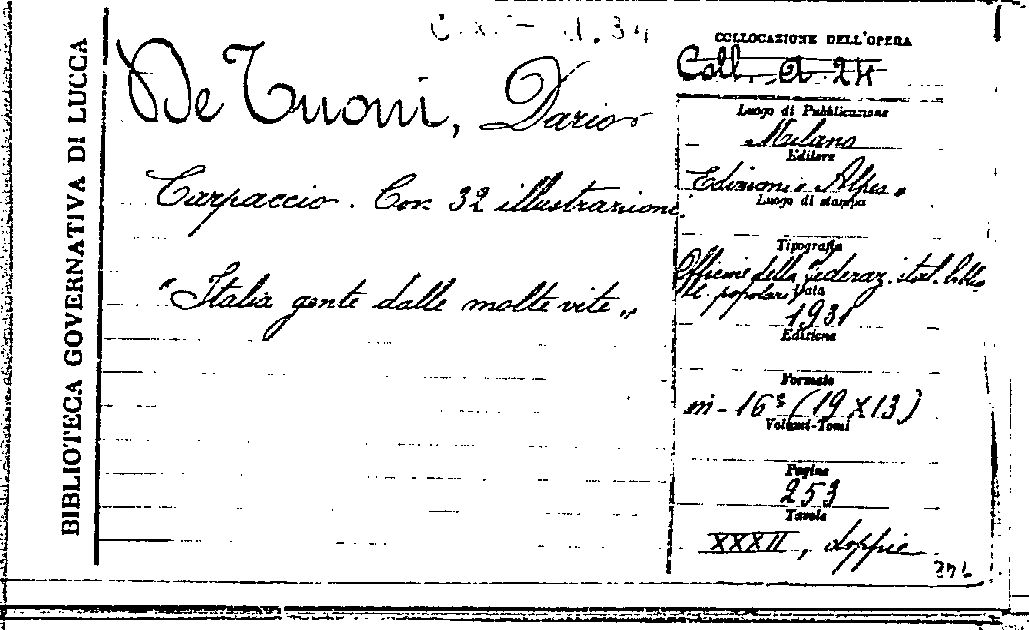 BIBLIOTECA GOVERNATIVA DI LUCCA
De Tuoni, Dario
Carpaccio. Con 32 illustrazione.
"Italia gente dalle molte vite"
COLLOCAZIONE DELL'OPERA
Coll. A. 24
Luogo di Pubblicazione
Milano
Editore
Edizioni "Alpes"
Luogo di stampa
Tipografia
Officine della Federaz. ital. biblio
t. popolari
Data
1931
Edizione
Formato
in-16º (19 x 13)
Volumi-Tomi
Pagine
253
Tavole
XXXII, doppie